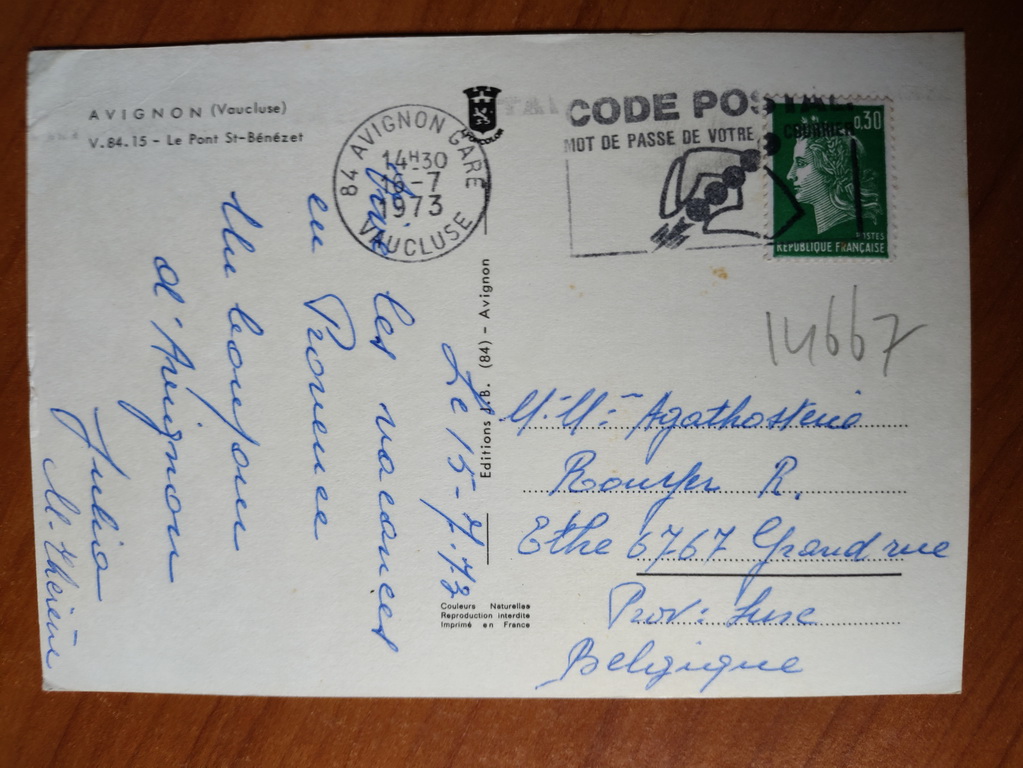 AVIGNON (Vaucluse)
V.84.15 - Le Pont St-Bénézet
84 AVIGNON GARE
14H30
-7
1973
VAUCLUSE
CODE POSTAL
MOT DE PASSE DE VOTRE COURRIER
0,30
POSTES
REPUBLIQUE FRANÇAISE
14667
Le 15-7-73
les vacances
en Provence
Un bonjour
d'Avignon
Julia
Editions J.B. (84) - Avignon
R.
Ethe 6767 Grand rue
Prov: Luxe
Belgique
Couleurs Naturelles
Reproduction interdite
Imprimé en France